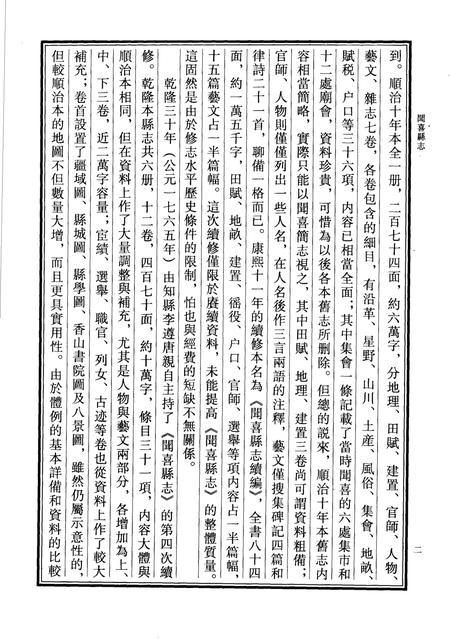 聞喜縣志
二
到。順治十年本全一册，二百七十四面，約六萬字，分地理、田賦、建置、官師、人物、
藝文、雜志七卷，各卷包含的細目，有沿革、星野、山川、土産、風俗、集會、地畝、
賦税、户口等三十六項，内容已相當全面；其中集會一條記載了當時聞喜的六處集市和
十二處廟會，資料珍貴，可惜為以後各本舊志所删除。但總的説來，順治十年本舊志内
容相當簡略，實際只能以聞喜簡志視之，其中田賦、地理、建置三卷尚可謂資料粗備；
官師、人物則僅僅列出一些人名，在人名後作三言兩語的注釋，藝文僅搜集碑記四篇和
律詩二十一首，聊備一格而已。康熙十一年的續修本名為《聞喜縣志續編》，全書八十四
面，約一萬五千字，田賦、地畝、建置、徭役、户口、官師、選舉等項内容占一半篇幅，
十五篇藝文占一半篇幅。這次續修僅限於賡續資料，未能提高《聞喜縣志》的整體質量。
這固然是由於修志水平歷史條件的限制，怕也與經費的短缺不無關係。
乾隆三十年（公元一七六五年）由知縣李遵唐親自主持了《聞喜縣志》的第四次續
修。乾隆本縣志共六册，十二卷，四百七十面，約十萬字，條目三十一項，内容大體與
順治本相同，但在資料上作了大量調整與補充，尤其是人物與藝文兩部分，各增加為上、
中、下三卷，近二萬字容量；宦績、選舉、職官、列女、古迹等卷也從資料上作了較大
補充；卷首設置了疆域圖、縣城圖、縣學圖、香山書院圖及八景圖，雖然仍屬示意性的，
但較順治本的地圖不但數量大增，而且更具實用性。由於體例的基本詳備和資料的比較